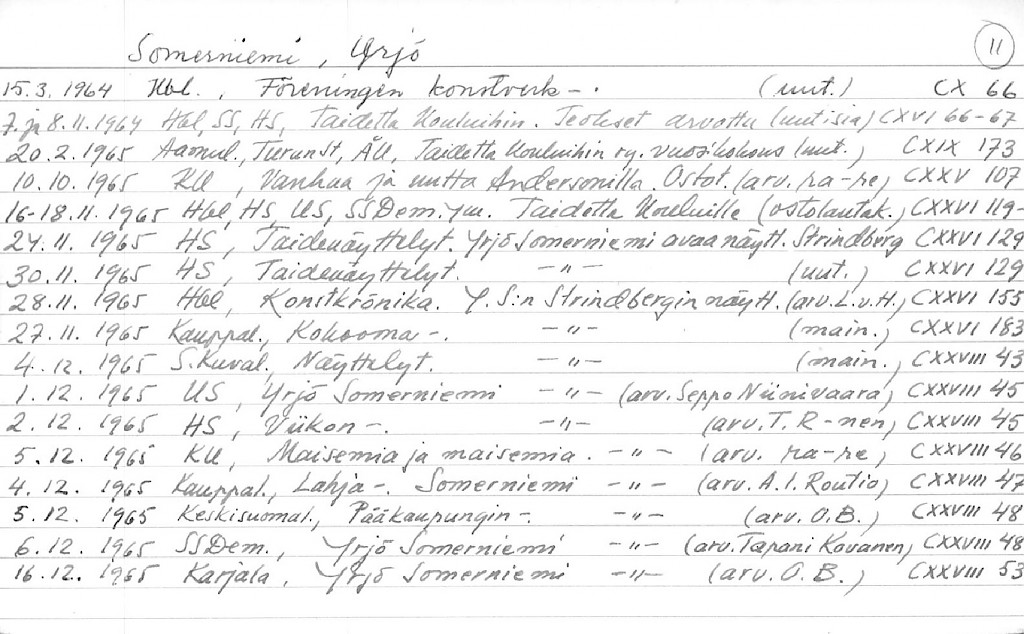 Somerniemi, Yrjö
11
15.3.1964 Hbl., Föreningen konstverk-. (uut.) CX 66
7. ja 8.11.1964 Hbl, SS, HS, Taidetta Kouluihin. Teokset arvottu (uutisia) CXVI 66-67
20.2.1965 Aamul., TurunSt, ÅU, Taidetta Kouluihin ry. vuosikokous (uut.) CXIX 173
10.10.1965 KU, Vanhaa ja uutta Andersonilla. Ostot. (arv. ra-re) CXXV 107
16-18.11.1965 Hbl, HS, US, SSDem. ym. Taidetta Kouluille (ostolautak.) CXXVI 119-
24.11.1965 HS, Taidenäyttelyt. Yrjö Somerniemi avaa näytt. Strindberg CXXVI 129
30.11.1965 HS, Taidenäyttelyt. -"- (uut.) CXXVI 129
28.11.1965 Hbl, Konstkrönika. Y.S:n Strindbergin näytt. (arv. L.v.H.) CXXVI 155
27.11.1965 Kauppal., Kokooma-. -"- (main.) CXXVI 183
4.12.1965 S.Kuval., Näyttelyt. -"- (main.) CXXVIII 43
1.12.1965 US, Yrjö Somerniemi -"- (arv. Seppo Niinivaara) CXXVIII 45
2.12.1965 HS, Viikon-. -"- (arv. T. R-nen) CXXVIII 45
5.12.1965 KU, Maisemia ja maisemia. -"- (arv. ra-re) CXXVIII 46
4.12.1965 Kauppal., Lahja-. Somerniemi -"- (arv. A.I. Routio) CXXVIII 47
5.12.1965 Keskisuomal., Pääkaupungin-. -"- (arv. O.B.) CXXVIII 48
6.12.1965 SSDem., Yrjö Somerniemi -"- (arv. Tapani Kovanen) CXXVIII 48
16.12.1965 Karjala, Yrjö Somerniemi -"- (arv. O.B.) CXXVIII 53